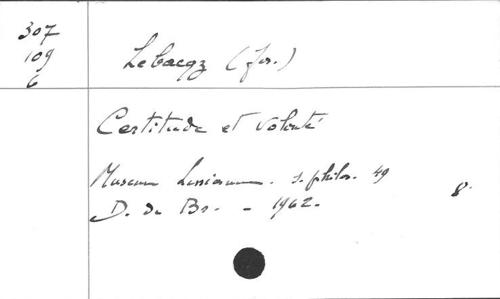 307
109
6
Lebacqz (Jos.)
Certitude et volonté
Museum Lessianum. s. philos. 49
8°
D. de Br. - 1962.